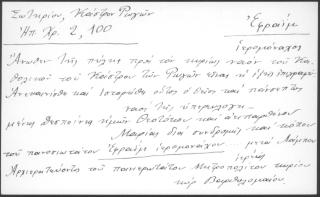 Σωτηρίου, Κάστρον Ρωγῶν
Ἠπ. Χρ. 2, 100
Ἐφραίμ
ἱερομόναχος
Ἄνωθεν τῆς πύλης πρὸς τὸν κυρίως ναὸν τοῦ Κα-
θολικοῦ τοῦ Κάστρου τῶν Ρωγῶν εἶναι ἡ ἑξῆς ἐπιγραφή
Ἀνεκαινίσθη καὶ ἱστορήθη οὗτος ὁ θεῖος καὶ πάνσεπτος
ναὸς τῆς ὑπερευλογη-
μένης δεσποίνης ἡμῶν Θεοτόκου καὶ ἀειπαρθένου
Μαρίας διὰ συνδρομῆς καὶ κόπου
τοῦ πανοσιωτάτου Ἐφραὶμ ἱερομονάχου... μετὰ Λάμπρου
ἱερέως
Ἀρχιερατεύοντος τοῦ πανιερωτάτου Μητροπολίτου κυρίου
κὺρ Βαρθολομαίου